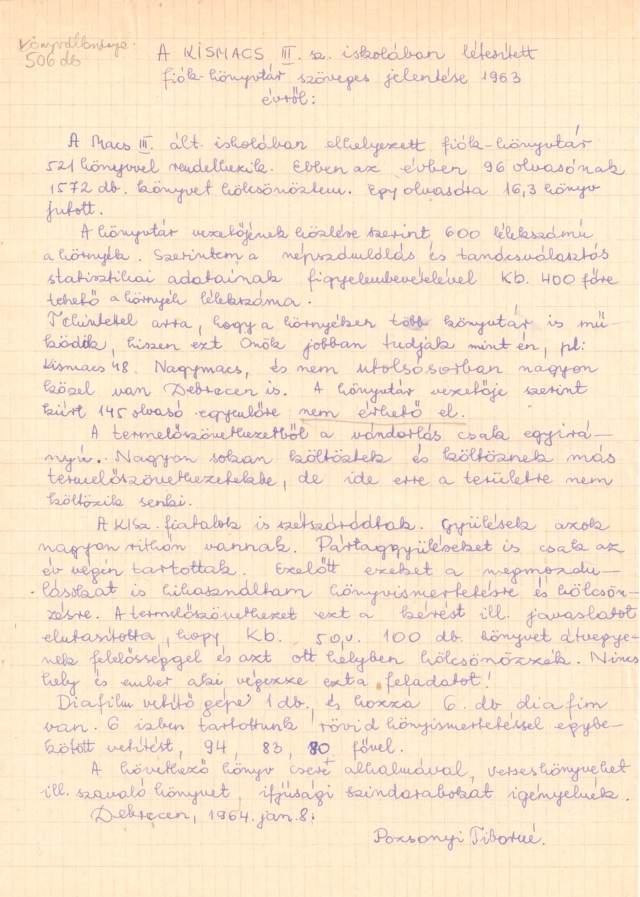 Könyvállománya:
506 db
A KISMACS III. sz. iskolában létesített
fiók-könyvtár szöveges jelentése 1963
évről:
A Macs III. ált. iskolában elhelyezett fiók-könyvtár
521 könyvvel rendelkezik. Ebben az évben 96 olvasónak
1572 db. könyvet kölcsönöztem. Egy olvasóra 16,3 könyv
jutott.
A könyvtár vezetőjének közlése szerint 600 lélekszámú
a környék. Szerintem a népszámlálás és tanácsválasztás
statisztikai adatainak figyelembevételével Kb. 400 főre
tehető a környék lélekszáma.
Tekintettel arra, hogy a környéken több könyvtár is mű-
ködik, hiszen ezt Önök jobban tudják mint én, pl:
Kismacs 48. Nagymacs, és nem utolsósorban nagyon
közel van Debrecen is. A könyvtár vezetője szerint
kiírt 145 olvasó egyenlőre nem érhető el.
A termelőszövetkezetből a vándorlás csak egyirá-
nyú. Nagyon sokan költöztek és költöznek más
termelőszövetkezetekbe, de ide erre a területre nem
költözik senki.
A KISz. fiatalok is szétszóródtak. Gyülések azok
nagyon ritkán vannak. Pártaggyüléseket is csak az
év végén tartottak. Ezelőtt ezeket a megmozdu-
lásokat is kihasználtam könyvismertetésre és kölcsön-
zésre. A termelőszövetkezet ezt a kérést ill. javaslatot
elutasította, hogy Kb. 50,v. 100 db. könyvet átvegye-
nek felelősséggel és azt ott helyben kölcsönözzék. Nincs
hely és ember aki végezze ezt a feladatot!
Diafilm vetítő gépe 1 db. és hozzá 6. db diafim
van. 6 izben tartottunk rövid könyismertetéssel egybe-
kötött vetítést, 94, 83, 80 fővel.
A következő könyv cseré alkalmával, verseskönyveket
ill. szavaló könyvet, ifjúsági színdarabokat igényelnék.
Debrecen, 1964. jan. 8.
Pozsonyi Tiborné.